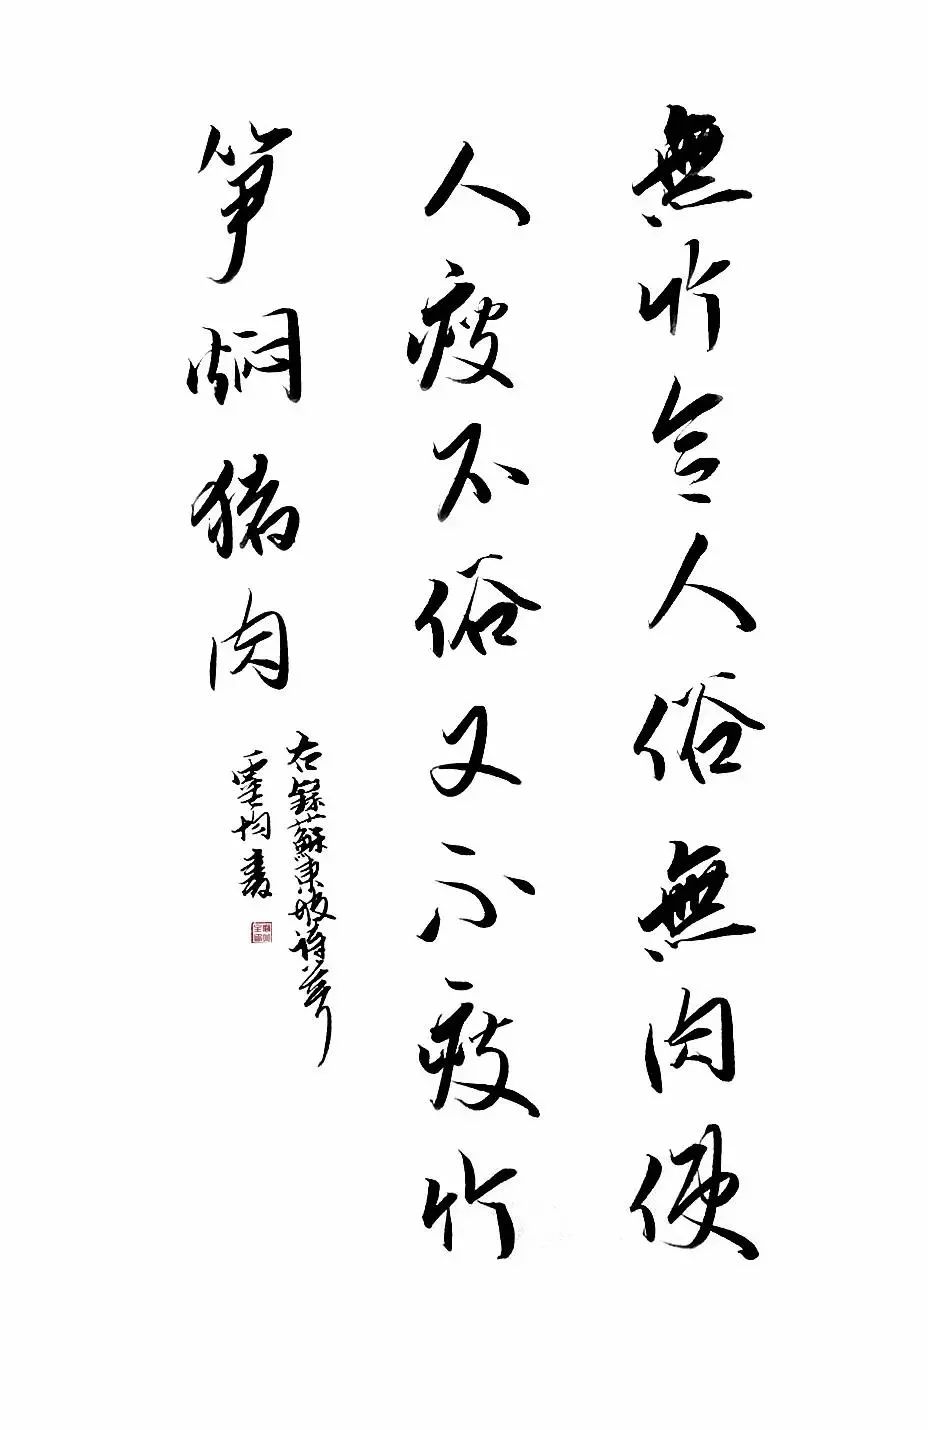 無竹令人俗無肉便
人瘦不俗又不瘦竹
笋焖猪肉
右録蘇東坡詩
均書